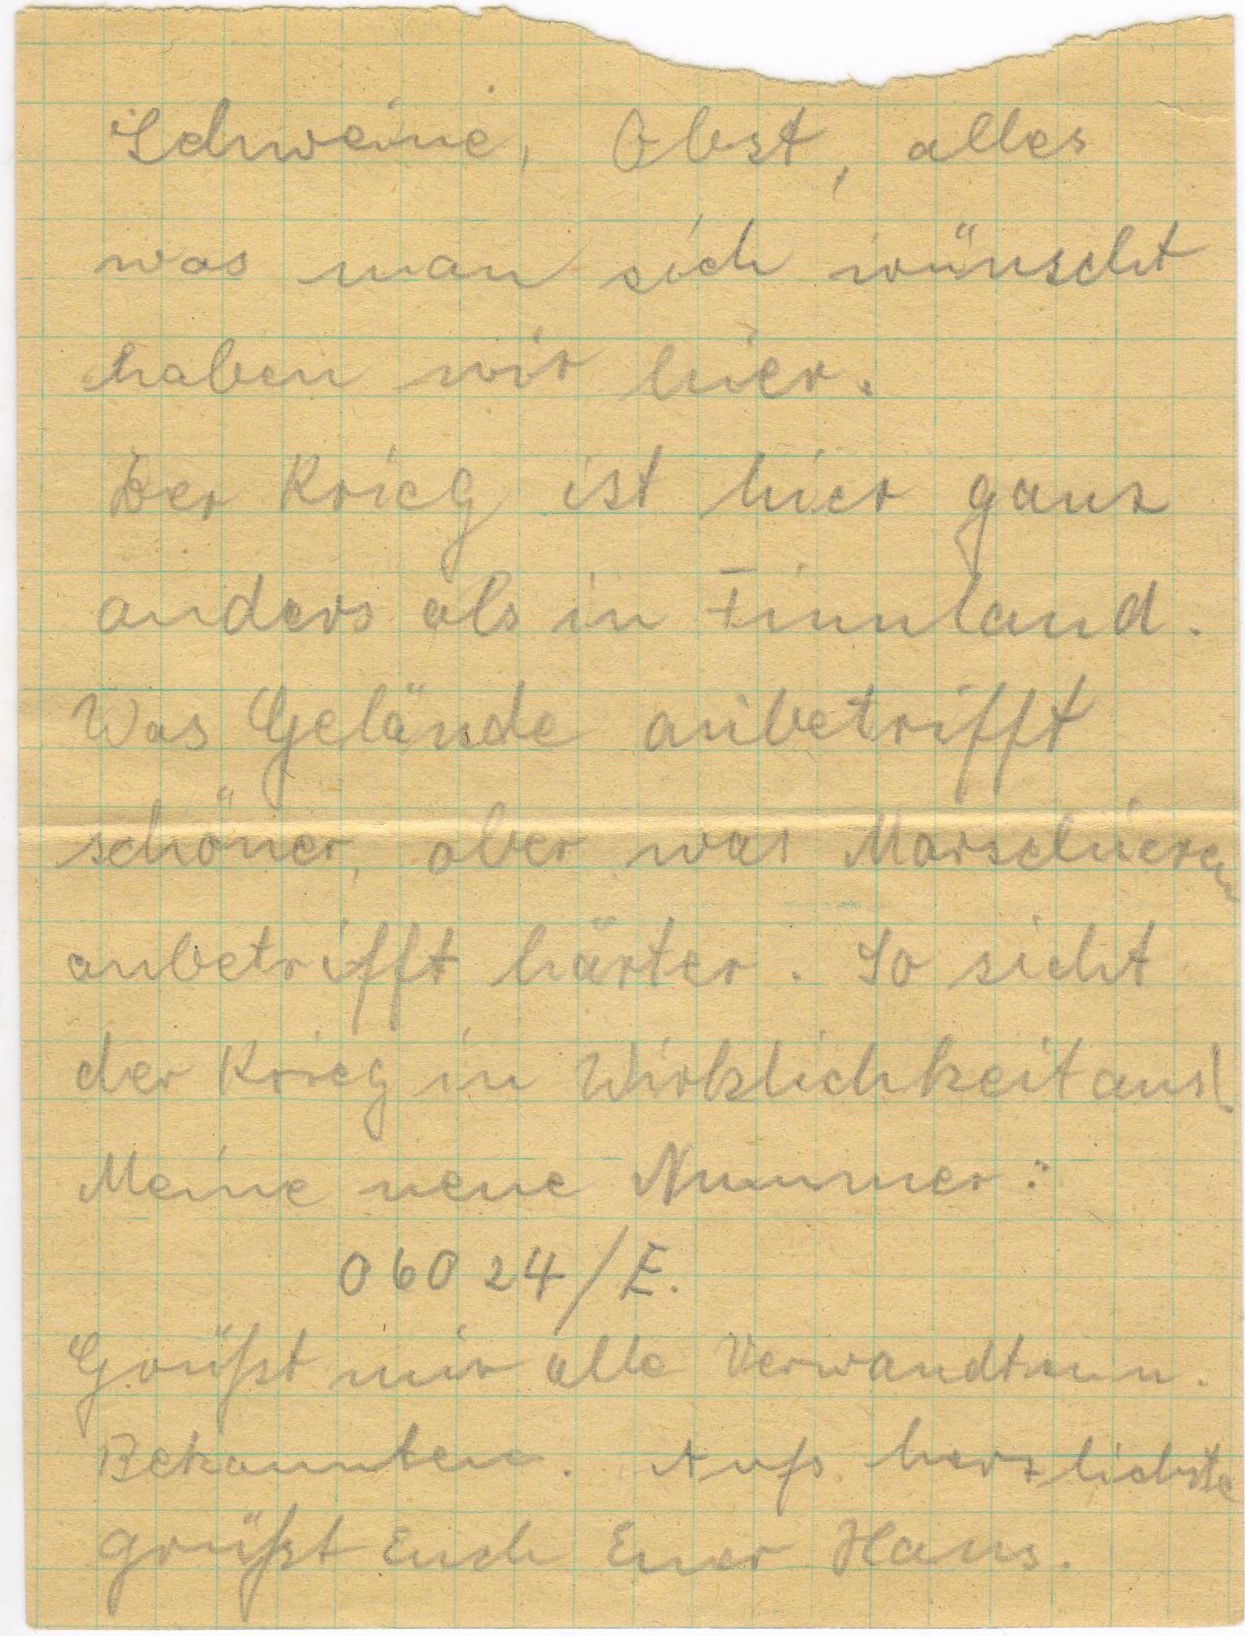 Schweine, Obst, alles
was man sich wünscht
haben wir hier.
Der Krieg ist hier ganz
anders als in Finnland.
Was Gelände anbetrifft
schöner, aber was Marschieren
anbetrifft härter. So sieht
der Krieg in Wirklichkeit aus!
Meine neue Nummer:
06024/E.
Grüßt mir alle Verwandten u.
Bekannten. Aufs herzlichste
grüßt Euch Euer Hans.